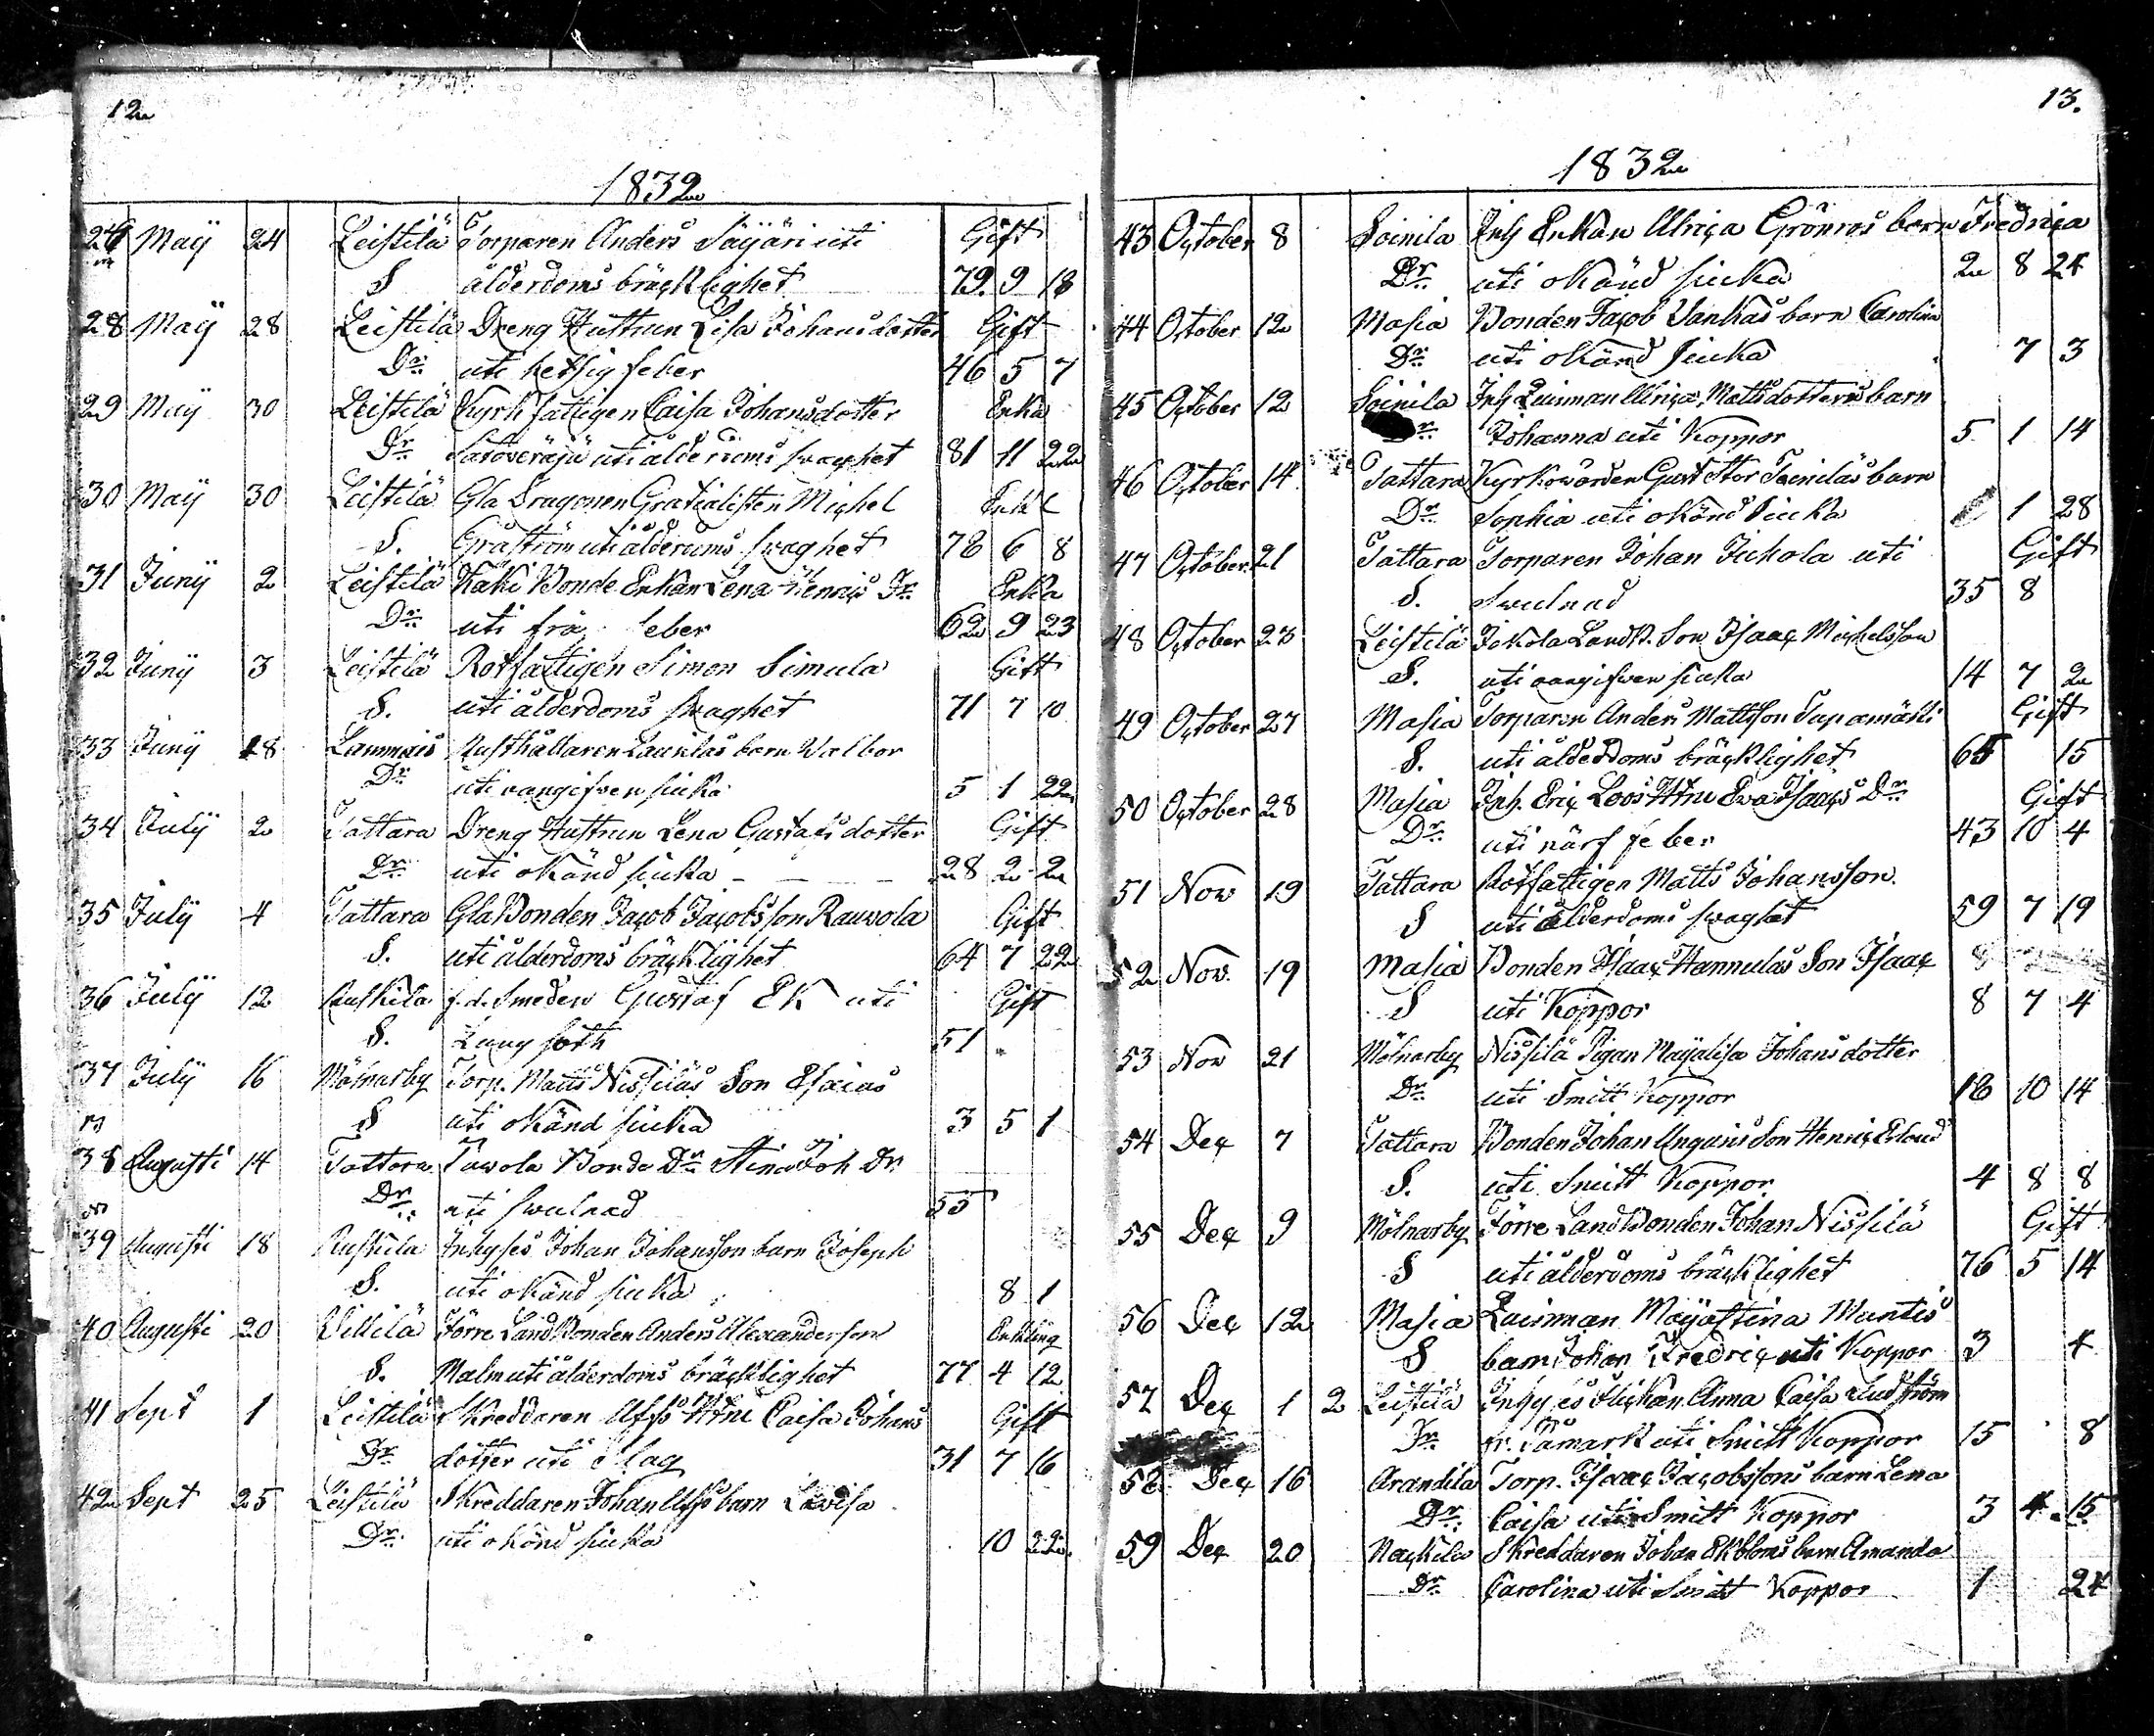 12
1832
Maij 24 Leistilä Torparen Anders Säÿäri uti Gift
S ålderdoms bräcklighet 79. 9 18
28 Maij 28 Leistilä Dreng Hustrun Lisa Johansdotter Gift
Dr uti hetsig feber 46 5 7
29 Maij 30 Leistilä Kyrkfattigen Caisa Johansdotter Enka
Dr uti ålderdoms swaghet 81 11 22
30 Maij 30 Leistilä Gla Dragonen Gratialisten Michel Enkl
S. Gråström uti ålderdoms swaghet 78 6 8
31 Junij 2 Leistilä Käki Bonde Enkan Lena Henrics Dr Enka
Dr uti feber 62 9 23
32 Junij 3 Leistilä Rotfattigen Simon Simula Gift
S. uti ålderdoms swaghet 71 7 10
33 Junij 18 Lammais Rusthållaren Laurilas barn Walbor
Dr uti oangifven siuka 5 1 22
34 Julij 2 Tattara Dreng Hustrun Lena Gustafsdotter Gift
Dr uti okänd siuka - - - 28 2 2
35 Julij 4 Tattara Gla Bonden Jacob Jacobsson Rauvola Gift
S. uti ålderdoms bräcklighet 64 7 22
36 Julij 12 Ruskila f.d. Smeden Gustaf Ek uti Gift
S. Lung soth 51
37 Julij 16 Mölnarby Torp. Matts Nissiläs Son Esaias
S uti okänd siuka 3 5 1
38 Augusti 14 Tattara Tawola Bonde Dr Stina Joh Dr
Dr uti swulnad 55
39 Augusti 18 Ruskila Inhyses Johan Johansson barn Joseph
S. uti okänd siuka 8 1
40 Augusti 20 Villilä Förre Landbonden Anders Alexandersson Enkling
S. Malm uti ålderdoms bräcklighet 77 4 12
41 Sept 1 Leistilä Skreddaren Ulfss Htru Caisa Johans Gift
Dr dotter uti Slag 31 7 16
42 Sept 25 Leistilä Skreddaren Johan Ulfss barn Lovisa
Dr. uti okänd siuka 10 22.
13.
1832
43 October 8 Soinila Inh Enkan Ulrica Grönros barn Fredrica
Dr uti okänd siuka 2 8 24
44 October 12 Masia Bonden Jacob Vankas barn Carolina
Dr uti okänd siuka 7 3
45 October 12 Soinila Inh Quinnan Ulrica Mattsdotters barn
Dr Johanna uti Koppor 5 1 14
46 October 14 Tattara Kyrkowärden Gust Stor Toiniläs barn
Dr Sophia uti okänd siuka 1 28
47 October 21 Tattara Torparen Johan Juhola uti Gift
S. Swulnad 35 8
48 October 23 Leistilä Jokola Landb. Son Isaac Michelsson
S. uti oangifwen siuka 14 7 2
49 October 27 Masia Torparen Anders Mattsson Tupamäki Gift
S. uti ålderdoms bräcklighet 65 15
50 October 28 Masia Inh. Eric Loos Htru Eva Isaacs Dr Gift
Dr uti närf feber 43 10 4
51 Nov 19 Tattara Rotfattigen Matts Johansson.
S uti ålderdoms swaghet 59 7 19
52 Nov. 19 Masia Bonden Isaac Hannulas Son Isaac
S uti Koppor 8 7 4
53 Nov 21 Mölnarby Nissilä Pigan Majalisa Johansdotter
Dr uti Smitt Koppor 18 10 14
54 Dec 7 Tattara Bonden Johan Ungars Son Henric Erland
S. uti Smitt Koppor 4 8 8
55 Dec 9 Mölnarby Förre Landbonden Johan Nissilä Gift
S uti ålderdoms bräcklighet 76 5 14
56 Dec 12 Masia Quinnan Majastina Mantis
S barn Johan Fredric uti Koppor 3 4
57 Dec 12 Leistilä Inhyses Flickan Anna Caisa Lindström
Dr. fr. Påmark uti Smitt Koppor 15 8
58 Dec 16 Arandila Torp. Isaac Jacobssons barn Lena
Dr. Caisa uti Smitt Koppor 3 4 15
59 Dec 20 Nackila Skreddaren Johan Ekbloms barn Amanda
Dr Carolina uti Smitt Koppor 1 24